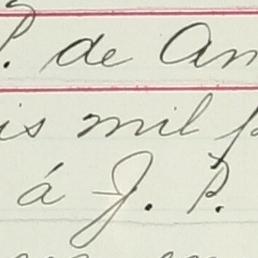 P. de An
is mil p
á J. P.